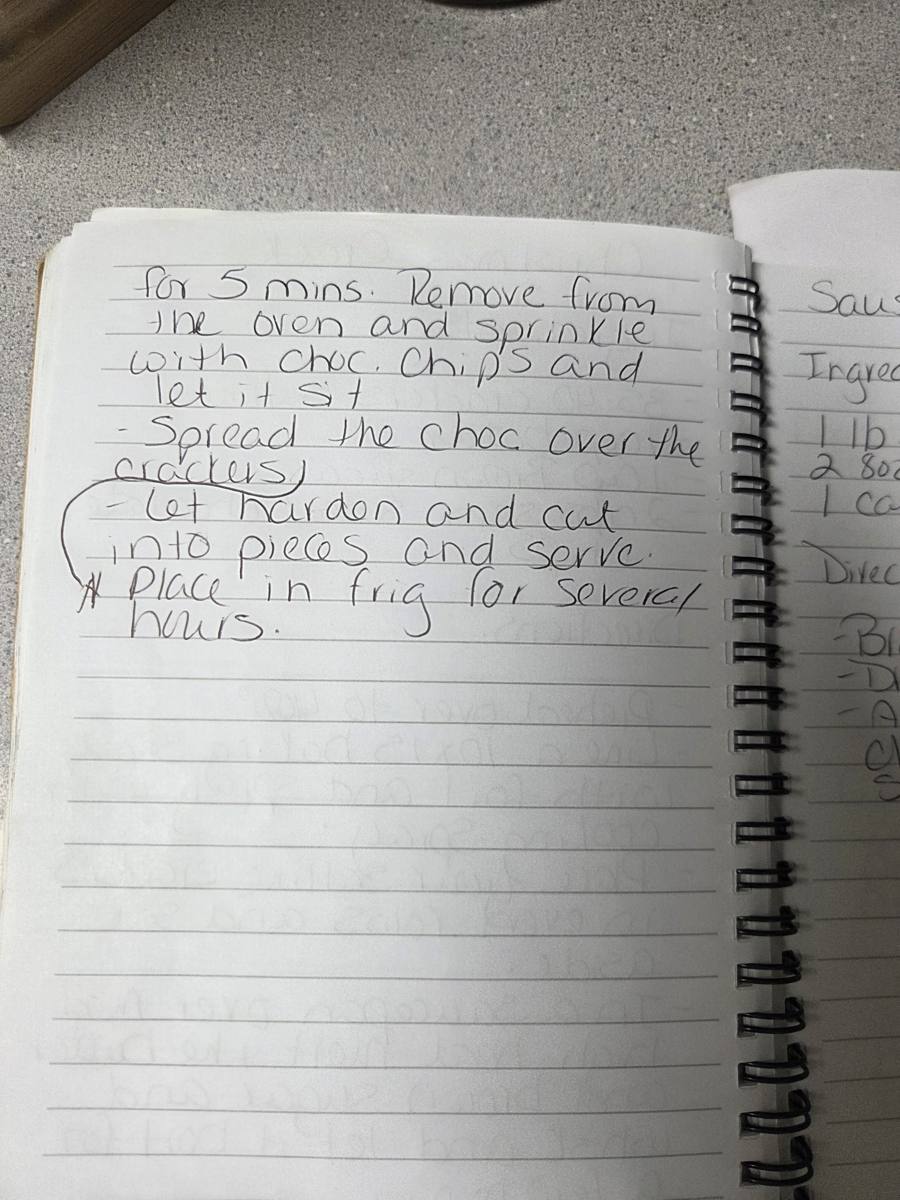 for 5 mins. Remove from
the oven and sprinkle
with choc. Chips and
let it sit
- Spread the choc over the
crackers
- Let harden and cut
into pieces and serve.
* Place in frig for several
hours.
Ingred
1 lb
2 8oz
1 ca
Direc